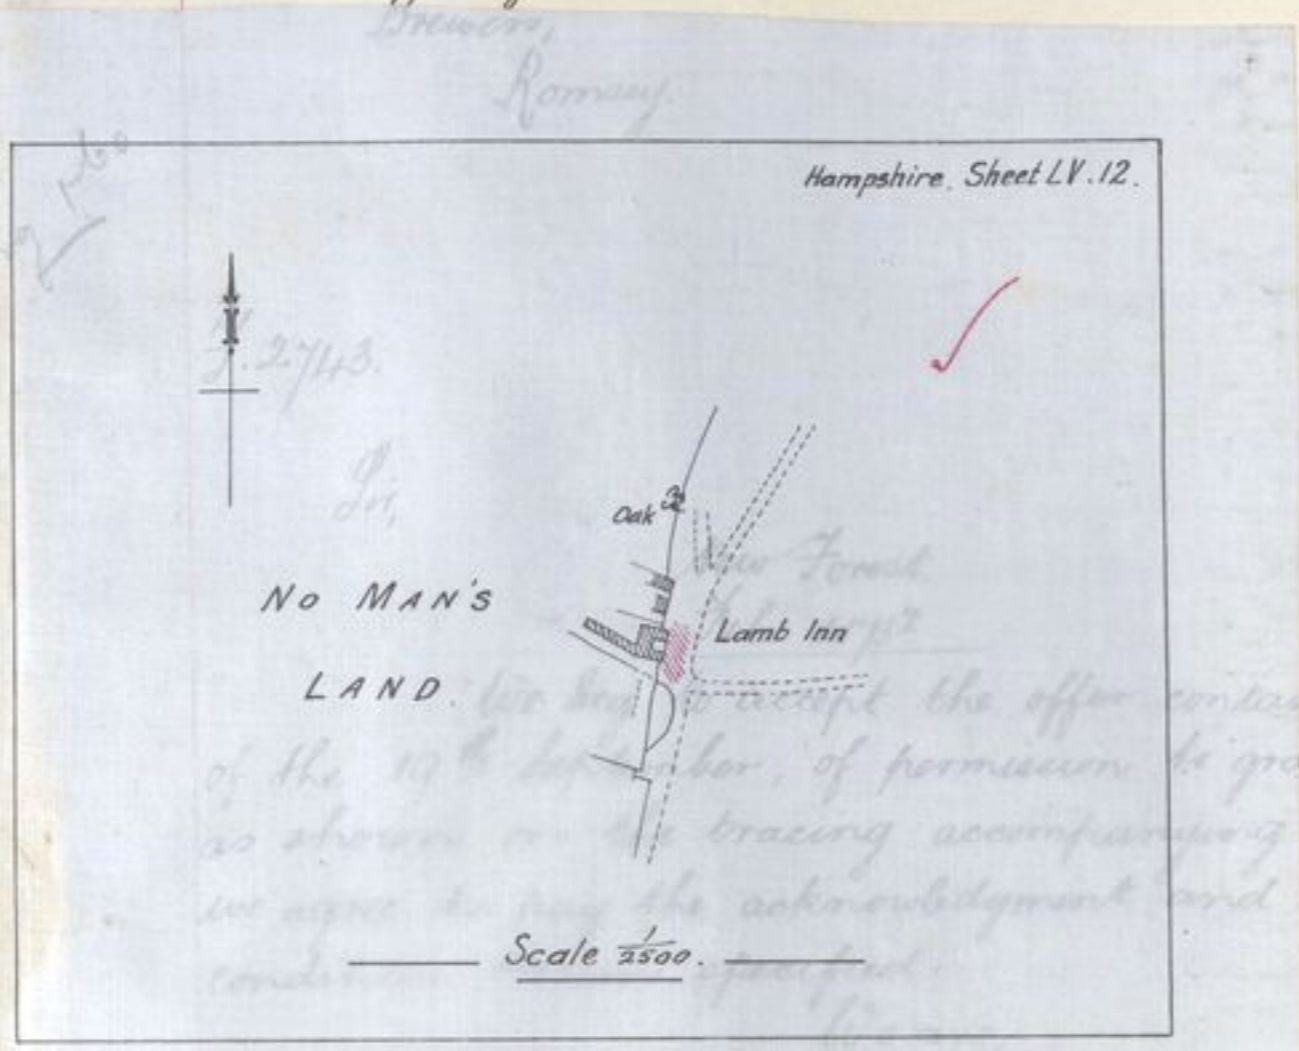 Romsey.
Hampshire. Sheet LV.12.
2743.
Oak
New Forest
NO MAN'S
Lamb Inn
LAND.
accept the offer
of the 19th September, of permission to
as shown on the tracing accompanying
we agree to pay the acknowledgment and
specified.
Scale 1/2500.